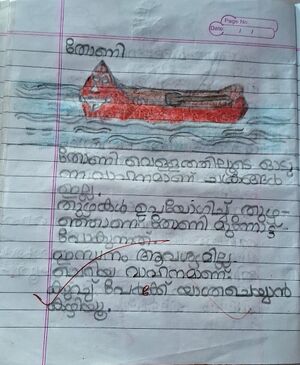 Page No.
Date: / /
തോണി
തോണി വെള്ളത്തിലൂടെ ഓടു
ന്ന വാഹനമാണ് ചക്രങ്ങൾ
ഇല്ല.
തുഴകൾ ഉപയോഗിച് തുഴ-
ഞ്ഞാണ് തോണി മുന്നോട്ട്
പോകുന്നത്.
ഇന്ധനം ആവശ്യമില്ല.
ചെറിയ വാഹനമാണ്.
കുറച്ച് പേർക്ക് യാത്രചെയ്യാൻ
കഴിയൂ.